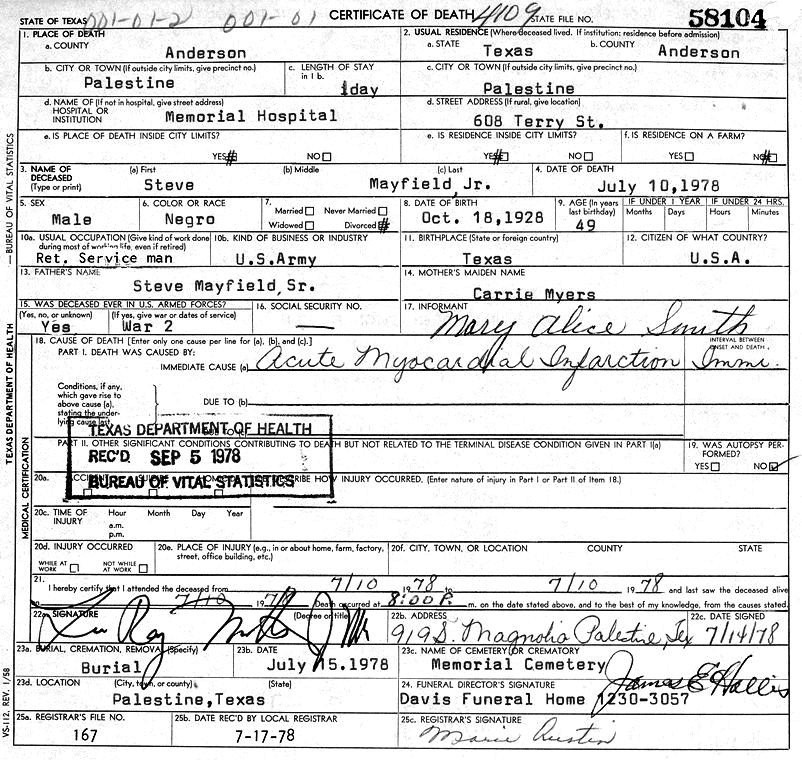 STATE OF TEXAS 001-01-2 001-01 CERTIFICATE OF DEATH 4109 STATE FILE NO. 58104
1. PLACE OF DEATH
a. COUNTY
Anderson
2. USUAL RESIDENCE (Where deceased lived. If institution: residence before admission)
a. STATE b. COUNTY
Texas Anderson
b. CITY OR TOWN (If outside city limits, give precinct no.)
Palestine
c. LENGTH OF STAY
in 1 b.
1day
c. CITY OR TOWN (If outside city limits, give precinct no.)
Palestine
d. NAME OF (If not in hospital, give street address)
HOSPITAL OR
INSTITUTION
Memorial Hospital
d. STREET ADDRESS (If rural, give location)
608 Terry St.
e. IS PLACE OF DEATH INSIDE CITY LIMITS?
YES NO
e. IS RESIDENCE INSIDE CITY LIMITS?
YES NO
f. IS RESIDENCE ON A FARM?
YES NO
3. NAME OF
DECEASED
(Type or print)
(a) First (b) Middle (c) Last
Steve Mayfield, Jr.
4. DATE OF DEATH
July 10,1978
5. SEX
Male
6. COLOR OR RACE
Negro
7.
Married Never Married
Widowed Divorced
8. DATE OF BIRTH
Oct. 18,1928
9. AGE (In years
last birthday)
49
IF UNDER 1 YEAR
Months Days
IF UNDER 24 HRS.
Hours Minutes
10a. USUAL OCCUPATION (Give kind of work done
during most of working life, even if retired)
Ret. Service man
10b. KIND OF BUSINESS OR INDUSTRY
U.S.Army
11. BIRTHPLACE (State or foreign country)
Texas
12. CITIZEN OF WHAT COUNTRY?
U.S.A.
13. FATHER'S NAME
Steve Mayfield, Sr.
14. MOTHER'S MAIDEN NAME
Carrie Myers
15. WAS DECEASED EVER IN U.S. ARMED FORCES?
(Yes, no, or unknown) (If yes, give war or dates of service)
Yes War 2
16. SOCIAL SECURITY NO.
—
17. INFORMANT
Mary Alice Smith
18. CAUSE OF DEATH [Enter only one cause per line for (a), (b), and (c).]
PART I. DEATH WAS CAUSED BY:
IMMEDIATE CAUSE (a) Acute Myocardial Infarction
INTERVAL BETWEEN
ONSET AND DEATH
Immi.
Conditions, if any,
which gave rise to
above cause (a),
stating the under-
lying cause last.
DUE TO (b)
TEXAS DEPARTMENT OF HEALTH
REC'D SEP 5 1978
BUREAU OF VITAL STATISTICS
PART II. OTHER SIGNIFICANT CONDITIONS CONTRIBUTING TO DEATH BUT NOT RELATED TO THE TERMINAL DISEASE CONDITION GIVEN IN PART I(a)
19. WAS AUTOPSY PER-
FORMED?
YES NO
20a. DESCRIBE HOW INJURY OCCURRED. (Enter nature of injury in Part I or Part II of Item 18.)
20c. TIME OF
INJURY
Hour Month Day Year
a.m.
p.m.
20d. INJURY OCCURRED
WHILE AT
WORK
NOT WHILE
AT WORK
20e. PLACE OF INJURY (e.g., in or about home, farm, factory,
street, office building, etc.)
20f. CITY, TOWN, OR LOCATION COUNTY STATE
21.
I hereby certify that I attended the deceased from 7/10 1978 to 7/10 1978 and last saw the deceased alive
on 7/10 1978 Death occurred at 8:00 P. m. on the date stated above, and to the best of my knowledge, from the causes stated.
22a. SIGNATURE (Degree or title)
22b. ADDRESS
919 S. Magnolia Palestine, Tex
22c. DATE SIGNED
7/14/78
23a. BURIAL, CREMATION, REMOVAL (Specify)
Burial
23b. DATE
July 15.1978
23c. NAME OF CEMETERY OR CREMATORY
Memorial Cemetery
23d. LOCATION (City, town, or county) (State)
Palestine,Texas
24. FUNERAL DIRECTOR'S SIGNATURE
James E Hollis
Davis Funeral Home 1230-3057
25a. REGISTRAR'S FILE NO.
167
25b. DATE REC'D BY LOCAL REGISTRAR
7-17-78
25c. REGISTRAR'S SIGNATURE
Marie Austin
TEXAS DEPARTMENT OF HEALTH — BUREAU OF VITAL STATISTICS
MEDICAL CERTIFICATION
VS-112, REV. 1/58